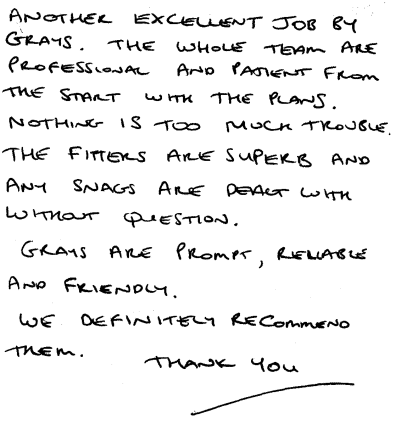 ANOTHER EXCELLENT JOB BY
GRAYS. THE WHOLE TEAM ARE
PROFESSIONAL AND PATIENT FROM
THE START WITH THE PLANS.
NOTHING IS TOO MUCH TROUBLE.
THE FITTERS ARE SUPERB AND
ANY SNAGS ARE DEALT WITH
WITHOUT QUESTION.
GRAYS ARE PROMPT, RELIABLE
AND FRIENDLY.
WE DEFINITELY RECOMMEND
THEM. THANK YOU